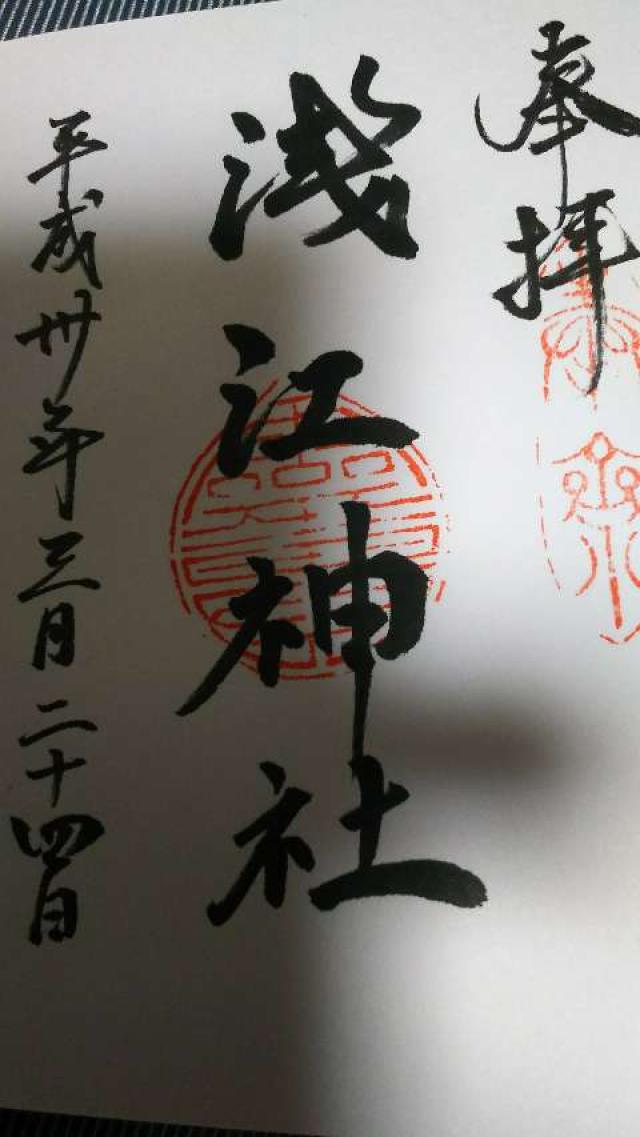 奉拝
浅江神社
平成卅年三月二十四日